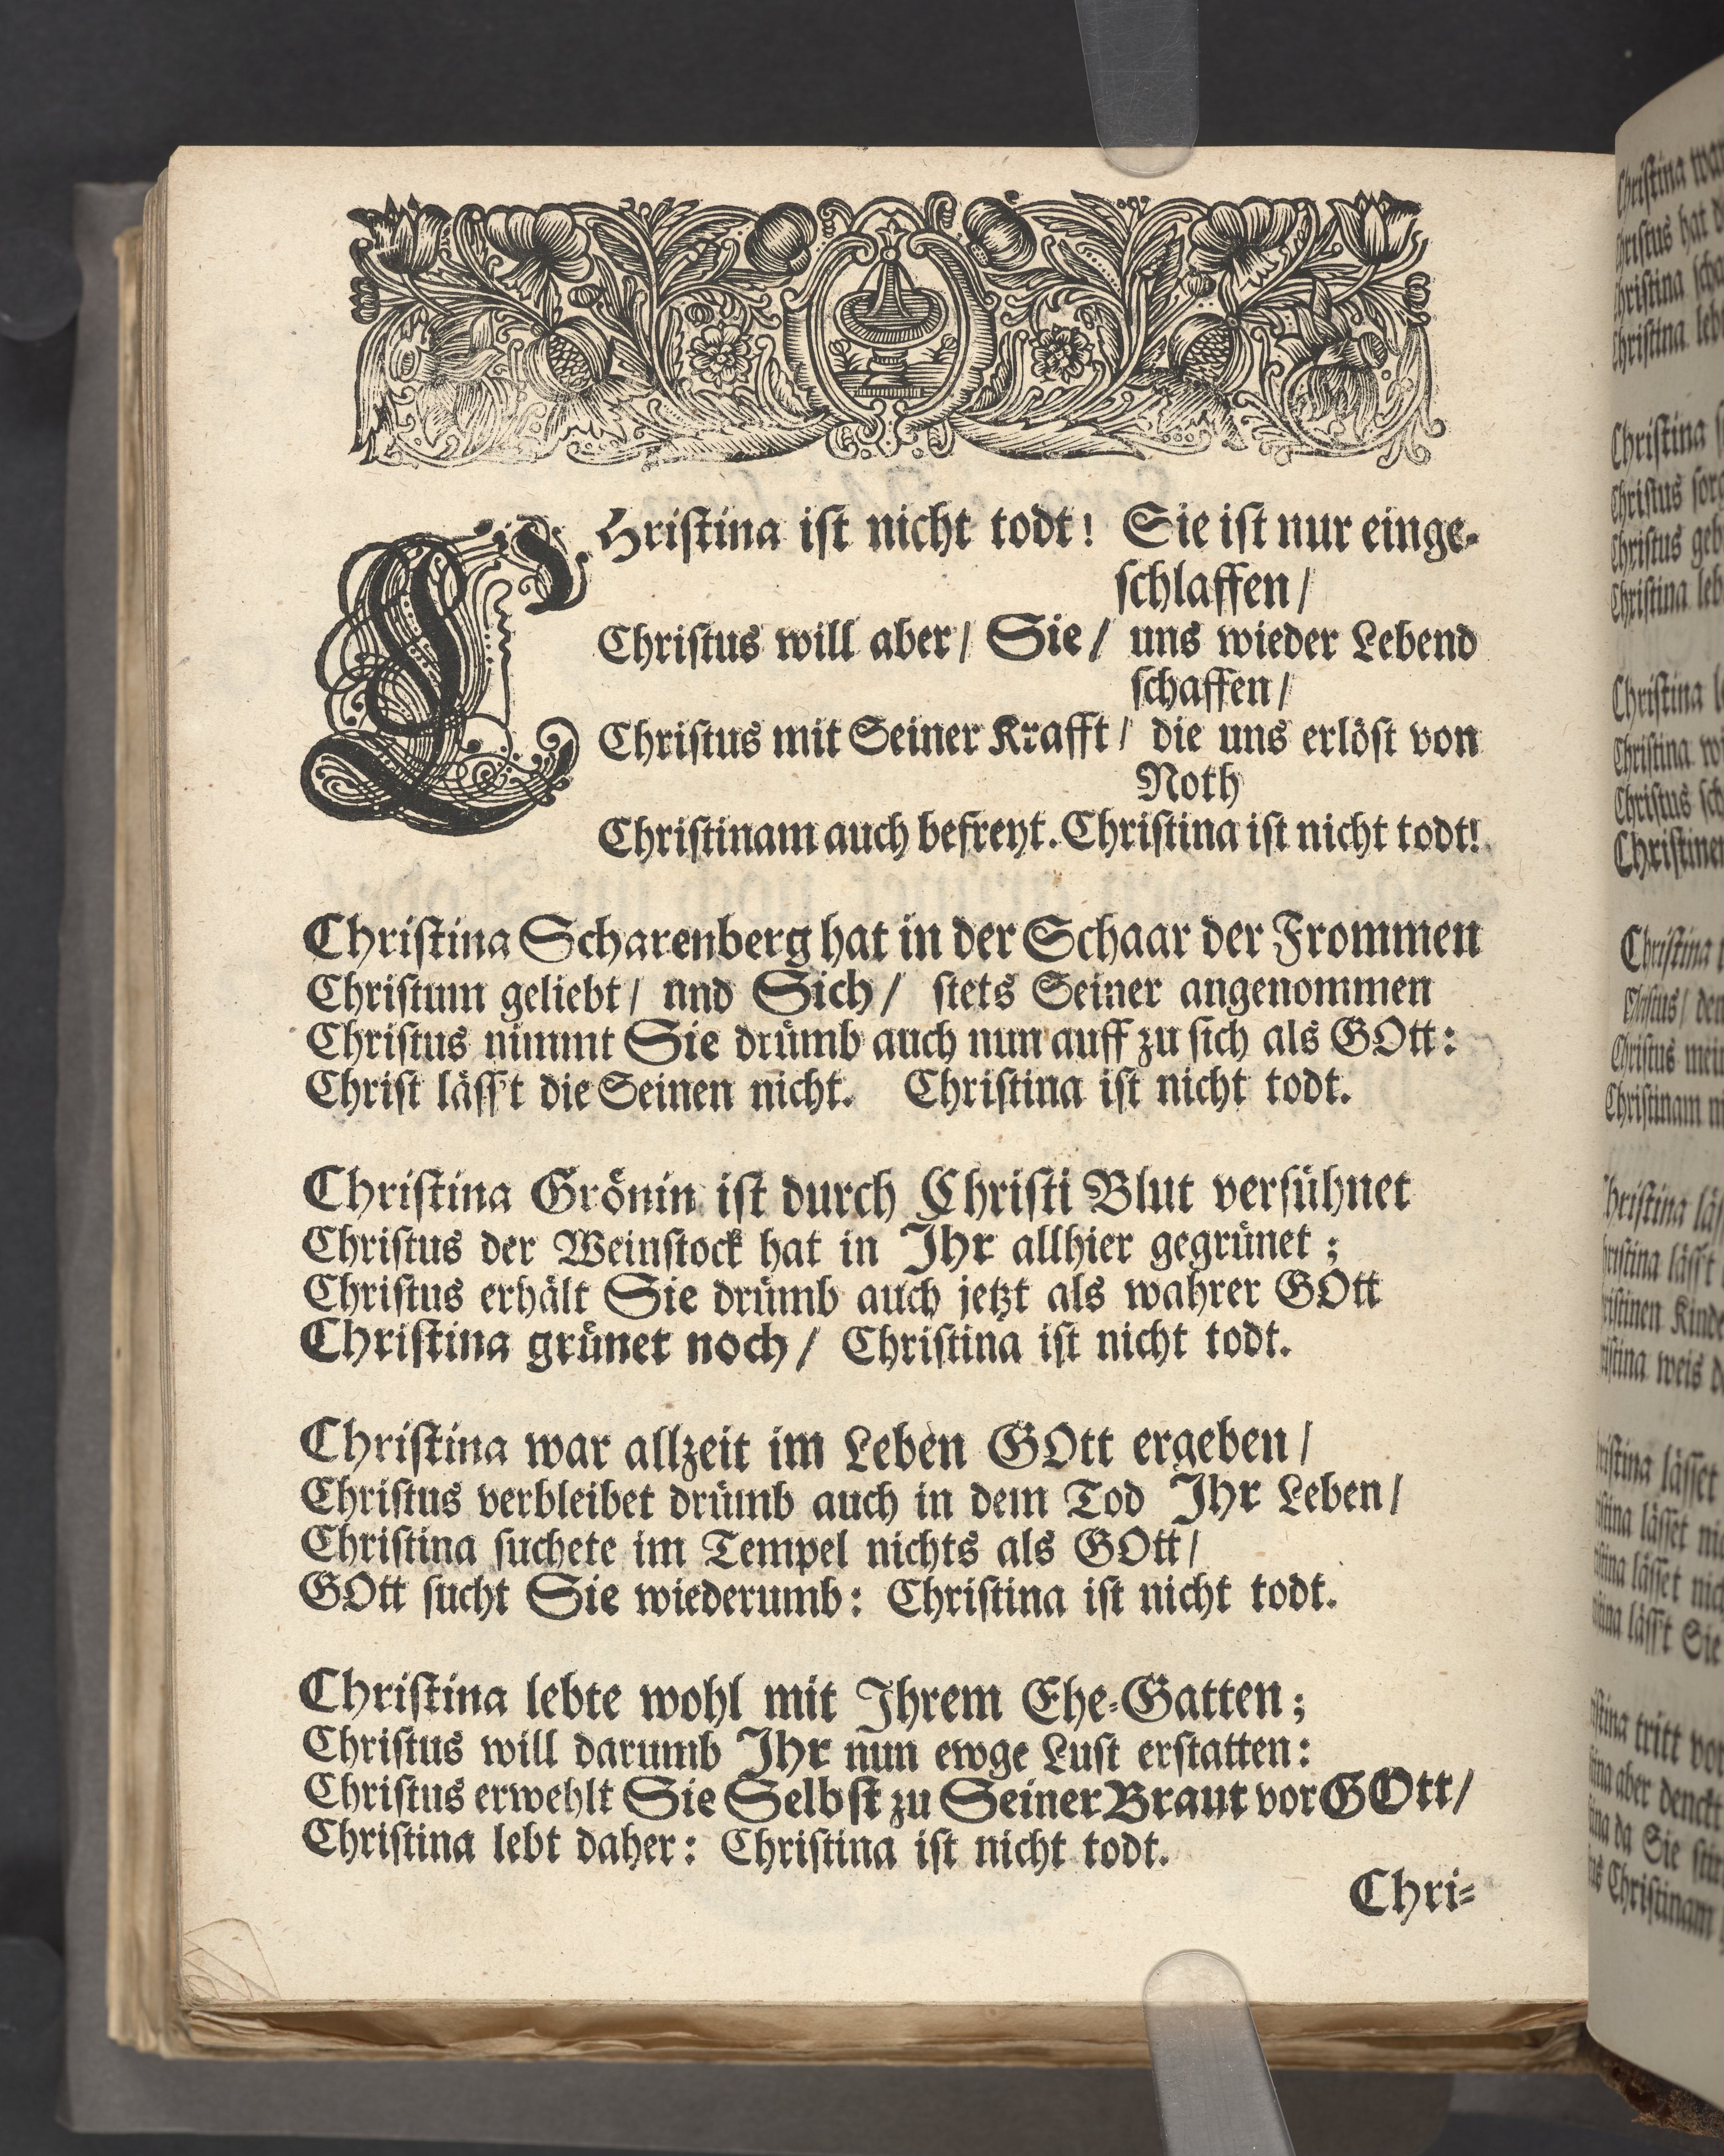 CHristina ist nicht todt! Sie ist nur einge-
schlaffen/
Christus will aber/ Sie/ uns wieder Lebend
schaffen/
Christus mit Seiner Krafft/ die uns erlöst von
Noth
Christinam auch befreyt. Christina ist nicht todt!
Christina Scharenberg hat in der Schaar der Frommen
Christum geliebt/ nnd Sich/ stets Seiner angenommen
Christus nimmt Sie drümb auch nun auff zu sich als GOtt:
Christ lässt die Seinen nicht. Christina ist nicht todt.
Christina Grönin ist durch Christi Blut versühnet
Christus der Weinstock hat in Ihr allhier gegrünet;
Christus erhält Sie drümb auch jetzt als wahrer GOtt
Christina grünet noch/ Christina ist nicht todt.
Christina war allzeit im Leben GOtt ergeben/
Christus verbleibet drümb auch in dem Tod Ihr Leben/
Christina suchete im Tempel nichts als GOtt/
GOtt sucht Sie wiederumb: Christina ist nicht todt.
Christina lebte wohl mit Ihrem Ehe-Gatten;
Christus will darumb Ihr nun ewge Lust erstatten:
Christus erwehlt Sie Selbst zu Seiner Braut vor GOtt/
Christina lebt daher: Christina ist nicht todt.
Chri-
Christina war
Christus hat
Christina
Christina
Christina
Christus
Christus
Christina
Christina
Christina
Christus
Christina
Christus mein
Christinam
Christina
Kinde
weis
lässet
lässet
lässet
lässt Sie
tritt vor
aber denckt
da Sie
Christinam